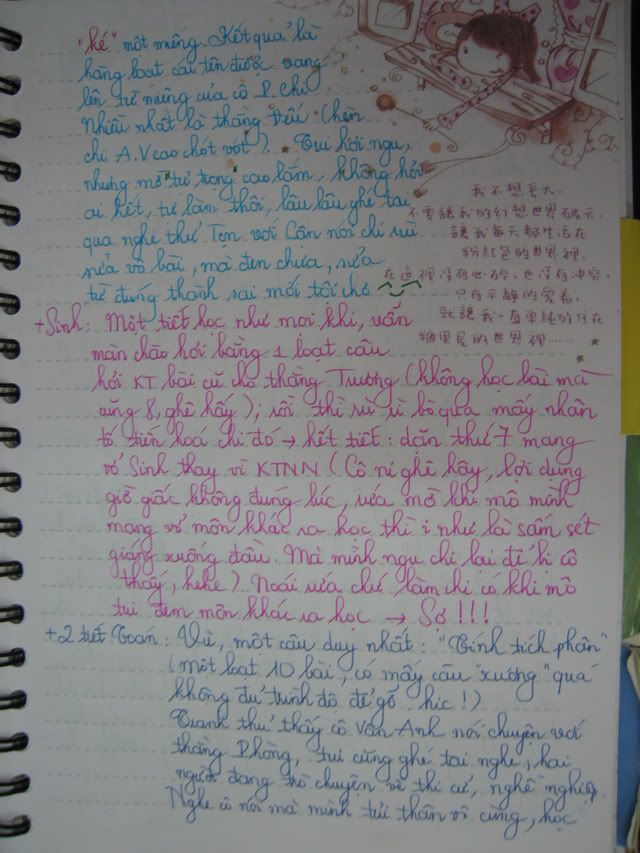 "ké" một miếng. Kết quả là
hàng loạt cái tên được vang
lên từ miệng của cô P. Chi
Nhiều nhất là thằng Đếu (hèn
chi A.V cao chót vót). Tui hơi ngu,
nhưng mờ tự trọng cao lắm, không hỏi
ai hết, tự làm thôi, lâu lâu ghé tai
qua nghe thử Tơn với Cân nói chi rùi
sửa vô bài, mà đen chưa, sửa
từ đúng thành sai mới tội chơ
我不想長大、
不要讓我的幻想世界破滅、
讓我每天都生活在
粉紅色的世界裡、
在這裡沒有心碎，也沒有冲突，
只有平靜的愛着，
就讓我一直單純的住在
糖果屋的世界裡……
+ Sinh: Một tiết học như mọi khi, vẫn
màn chào hỏi bằng 1 loạt câu
hỏi KT bài cũ cho thằng Trương (không học bài mà
cũng 8, ghê hấy); rồi thì rù rì bò qua mấy nhân
tố tiến hoá chi đó → hết tiết: dặn thứ 7 mang
vở Sinh thay vì KTNN (Cô ni ghê hây, lợi dụng
giờ giấc không đúng lúc, rứa mờ khi mô mình
mang vở môn khác ra học thì i như là sấm sét
giáng xuống đầu. Mà mình ngu chi lại để bị cô
thấy, hehe) Noái rứa chứ làm chi có khi mô
tui đem môn khác ra học → Sợ!!!
+ 2 tiết Toán: Vữ, một câu duy nhất: "Tính tích phân"
(một loạt 10 bài, có mấy câu "xương" quá
không đủ trình độ để gố.. hic!)
Tranh thủ thấy cô Vân Anh nói chuyện với
thằng Phòng, tui cũng ghé tai nghe, hai
người đang trò chuyện về thi cử, nghề nghiệp.
Nghe cô nói mà mình tủi thân vô cùng, học